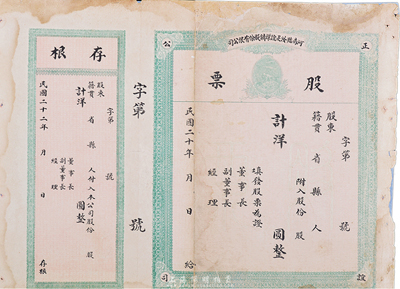 股份有限公司
正
公
司
股票
字第 號
股東
籍貫 省 縣 人
附入股份 股
計洋 圓整
填發股票為證
董事長
副董事長
經理
民國二十 年 月 日 給
字第 號
存根
字第 號
股東
籍貫 省 縣 人付入本公司股份 股
計洋 圓整
董事長
副董事長
經理
民國二十二年 月 日
存根